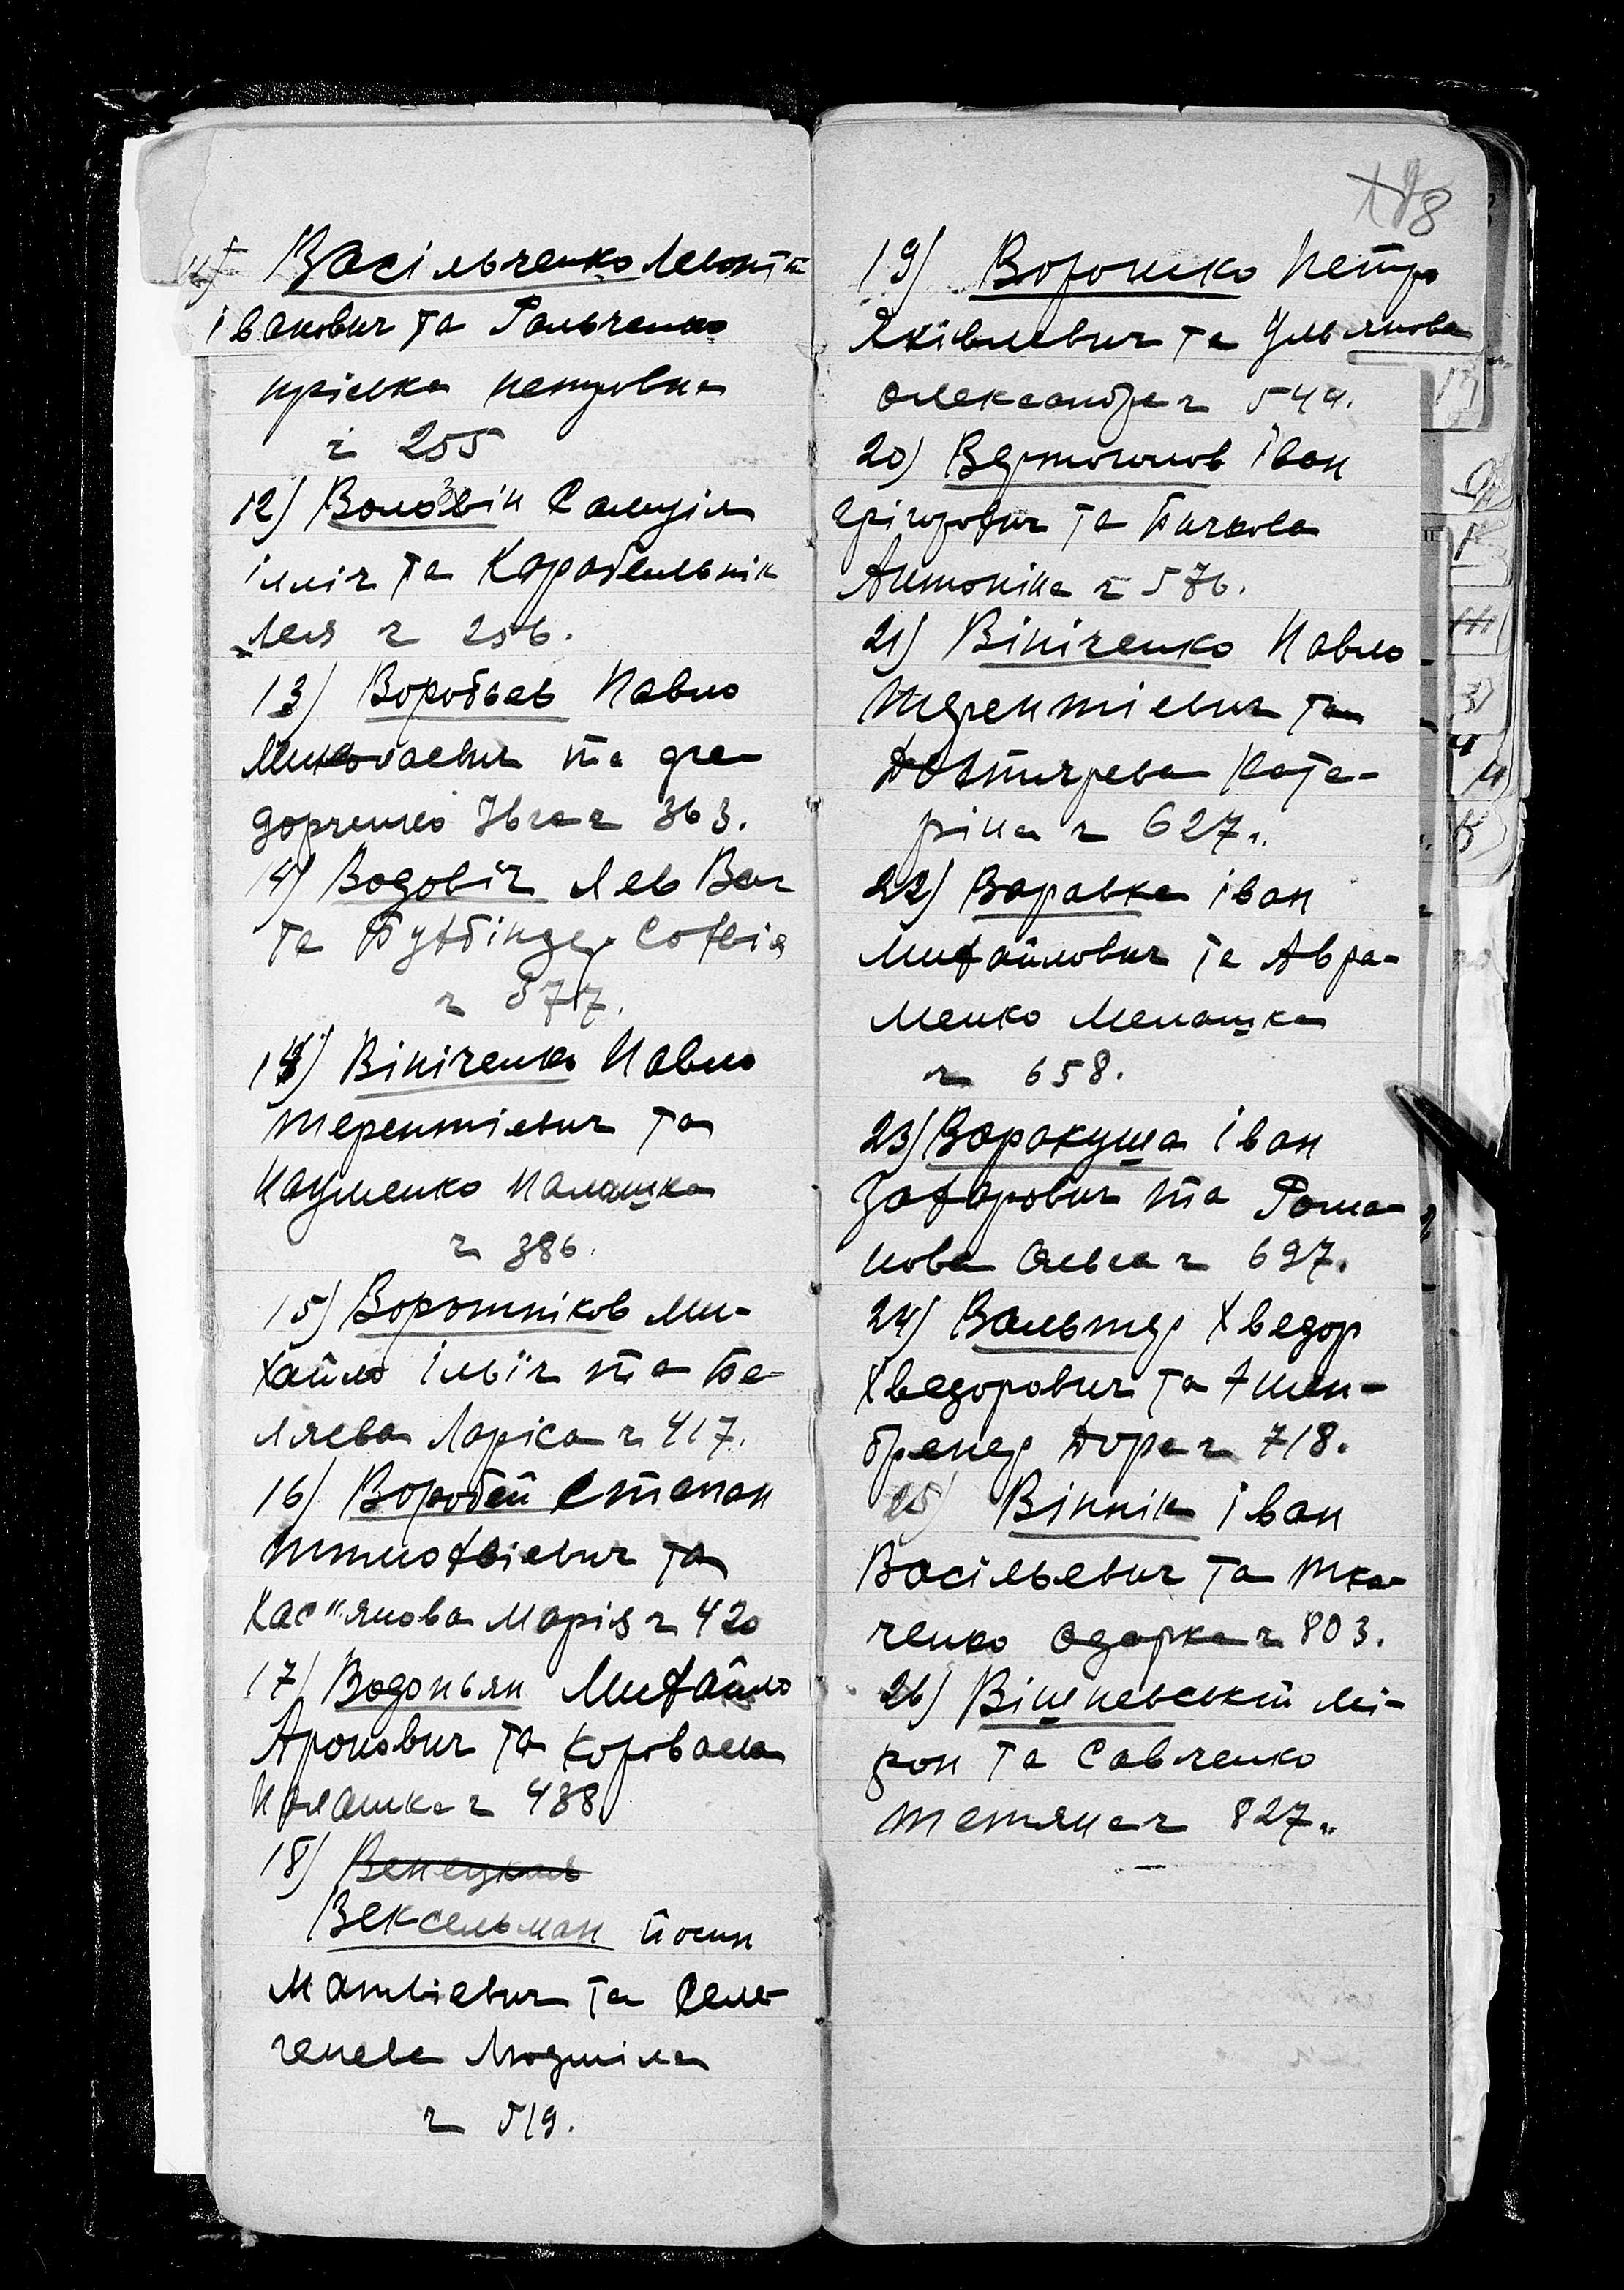 11) Васільченко Левонт
Іванович та Гальченко
Пріська Петровна
ч 255
12) Воловзін Самуіл
Ілліч та Карабельнік
Лея ч 256.
13) Воробьев Павло
Миколаевич та
Явга ч 363.
14) Водовіч Лев
та Софвія
ч 377.
14') Вініченко Павло
Терентіевич та
Науменко Палашка
ч 386.
15) Воротніков Ми-
хайло Ільїч та Бе-
ляева Ларіса ч 417.
16) Воробей Степан
Тимофвіевич та
Кас"янова Марія ч 420
17) Водопьян Михайло
Аронович та
Палашка ч 438
18) Венецкий
Вексельман Йосип
Матвіевич та Селе-
ченева Людміла
ч 519.
188
19) Ворошко Петро
Яківлевич та Ульянова
Олександра ч 544.
20) Іван
Грігорович та Бичкова
Антоніна ч 576.
21) Вініченко Павло
Терентіевич та
Катe-
ріна ч 627.
22) Варавка Іван
Михайлович та Авра-
менко Мелашка
ч 658.
23) Воракуша Іван
Захарович та Рома-
нова Ольга ч 697.
24) Вальтер Хведор
Хведорович та
Дора ч 718.
25) Віннік Іван
Васільевич та Тка-
ченко Одарка ч 803.
26) Вішневській Мі-
рон та Савченко
Тетяна ч 827.